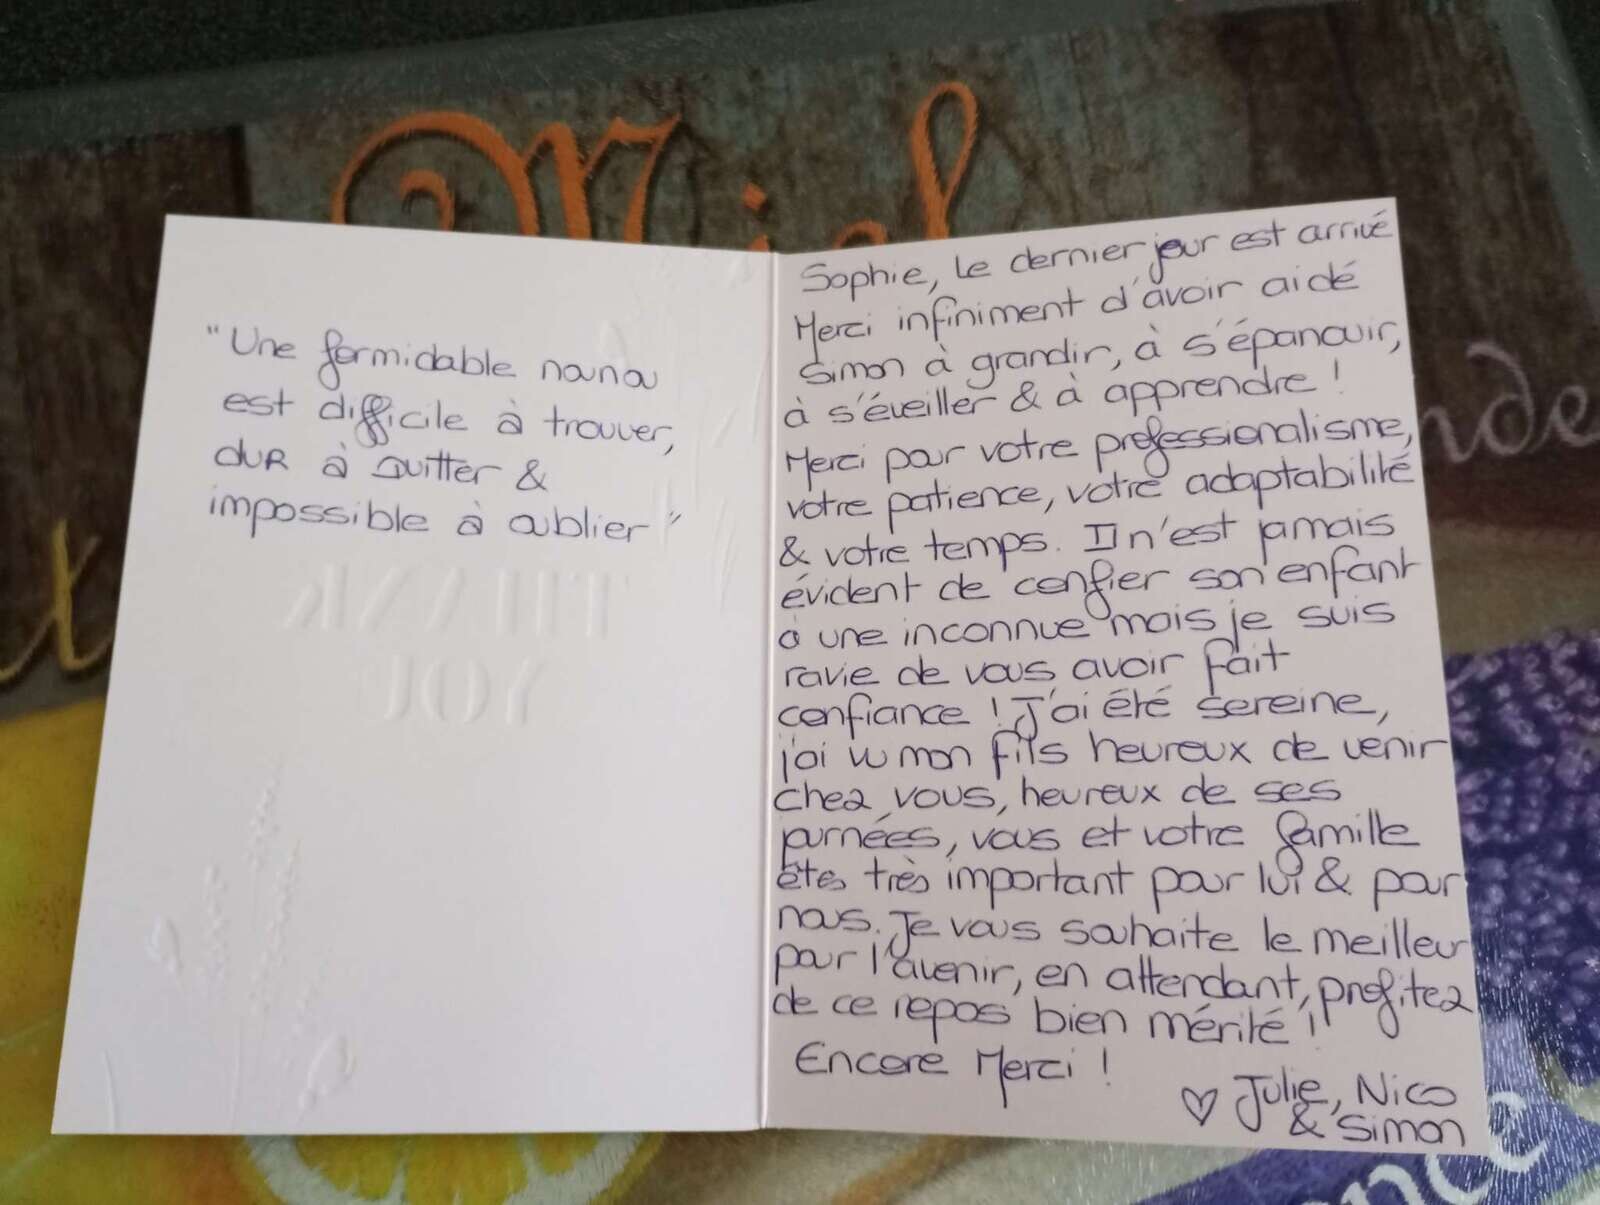 Miel
"Une formidable nana
est difficile à trouver,
dur à quitter &
impossible à oublier"
THANK
YOU
Sophie, le dernier jour est arrivé
Merci infiniment d'avoir aidé
Simon à grandir, à s'épanouir,
à s'éveiller & à apprendre !
Merci pour votre professionalisme,
votre patience, votre adaptabilité
& votre temps. Il n'est jamais
évident de confier son enfant
à une inconnue mais je suis
ravie de vous avoir fait
confiance ! J'ai été sereine,
j'ai vu mon fils heureux de venir
chez vous, heureux de ses
journées, vous et votre famille
êtes très important pour lui & pour
nous. Je vous souhaite le meilleur
pour l'avenir, en attendant, profitez
de ce repos bien mérité !
Encore Merci !
♡ Julie, Nico
& Simon